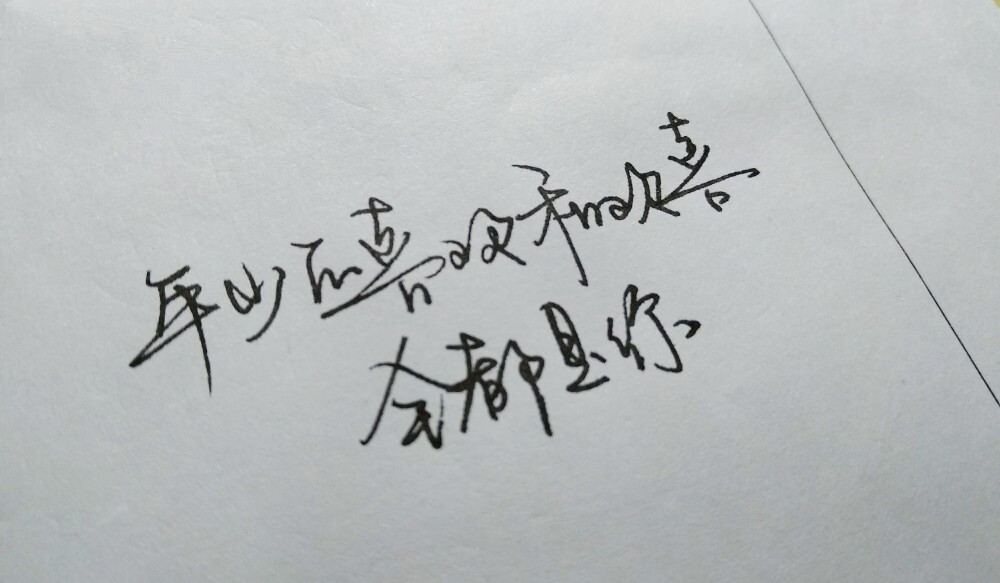 年少喜欢和欢喜
全都是你